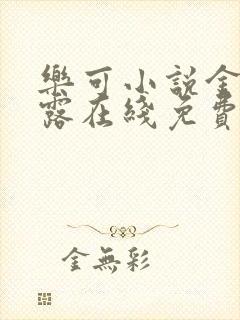 樂可小說金
露在綫免費
金無彩